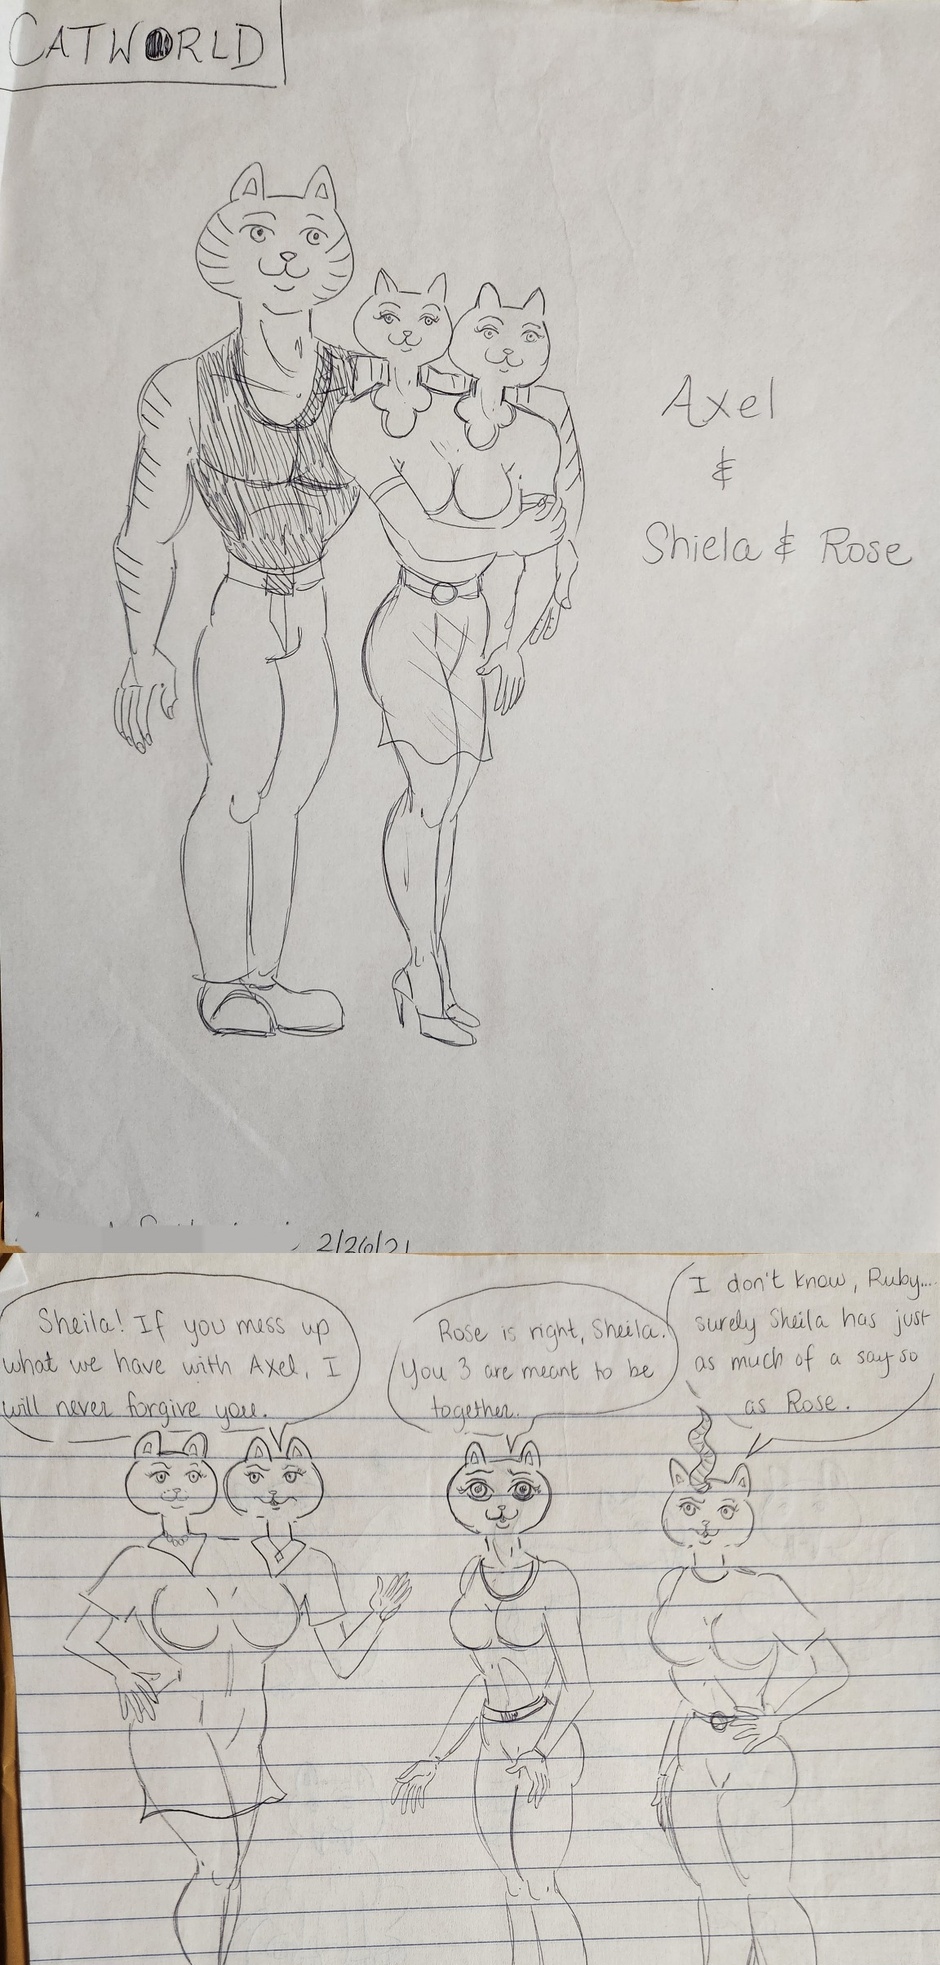 CATWORLD
Axel
&
Shiela & Rose
2/26/21
Sheila! If you mess up
what we have with Axel, I
will never forgive you.
Rose is right, Sheila.
You 3 are meant to be
together.
I don't know, Ruby....
surely Sheila has just
as much of a say so
as Rose.